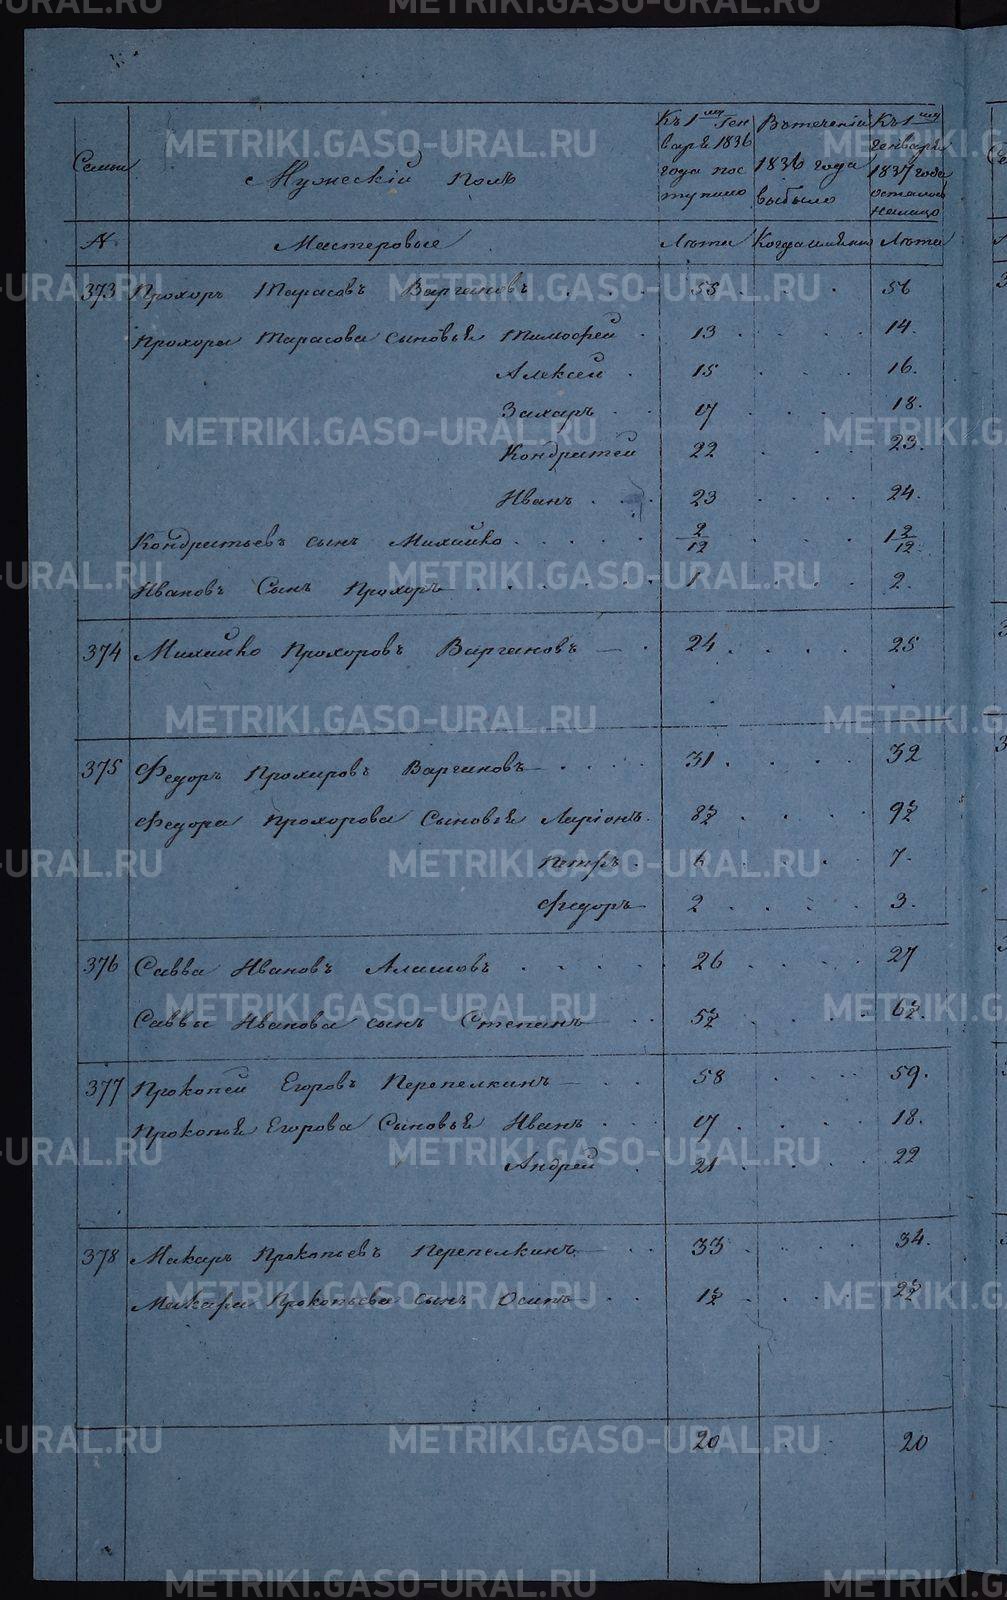 METRIKI.GASO-URAL.RU
Семьи
Мужескій полъ
Къ 1му Ген
варѣ 1836
года пос
тупило
Въ теченіи
1836 года
выбыло
Къ 1му
Генварѣ
1837 года
осталось
налицо
№ Мастеровые Лѣта Когда именно Лѣта
373 Прохоръ Тарасовъ Варгановъ 55 56
Прохора Тарасова сыновья Тимофей 13 14.
Алексей 15 16.
Захаръ 17 18.
Кондратей 22 23.
Иванъ 23 24.
Кондратьевъ сынъ Михайко 2/12 1 2/12
Ивановъ Сынъ Прохоръ 1 2.
374 Михайко Прохоровъ Варгановъ 24 25
375 Федоръ Прохоровъ Варгановъ 31 32
Федора Прохорова Сыновья Ларіонъ 8½ 9½
Петръ 6 7.
Федоръ 2 3.
376 Савва Ивановъ 26 27
Саввы Иванова сынъ Степанъ 5½ 6½
377 Прокопей Егоровъ Перепелкинъ 58 59.
Прокопья Егорова Сыновья Иванъ 17 18.
Андрей 21 22
378 Макаръ Прокопьевъ Перепелкинъ 33 34.
Макара Прокопьева сынъ Осипъ 1½ 2½
20 20